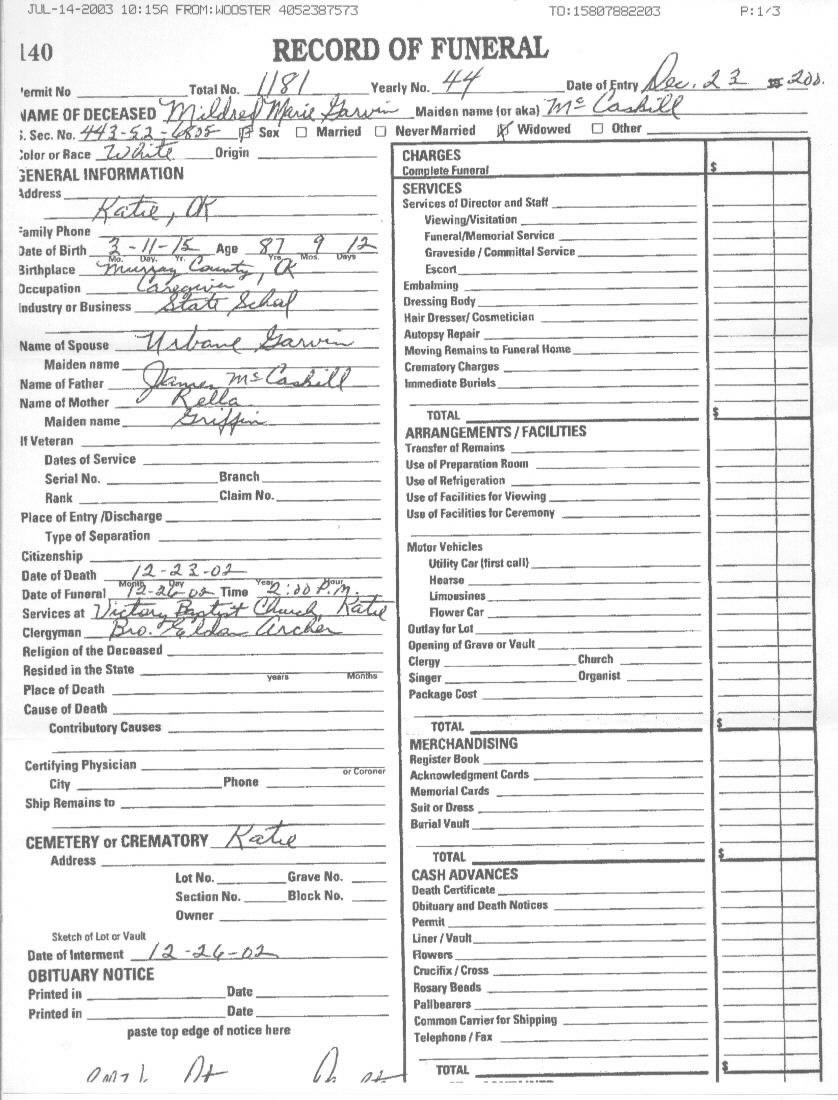 JUL-14-2003 10:15A FROM:WOOSTER 4052387573 TO:15807882203 P:1/3
140 RECORD OF FUNERAL
Permit No Total No. 1181 Yearly No. 44 Date of Entry Dec. 23 200
NAME OF DECEASED Mildred Marie Garvin Maiden name (or aka) McCaskill
S. Sec. No. 443-52-6835 Sex Married Never Married Widowed Other
Color or Race White Origin
GENERAL INFORMATION
Address
Katie, OK
Family Phone
Date of Birth 3-11-15 Age 87 9 12
Mo. Day. Yr. Yrs. Mos. Days
Birthplace Murray County, OK
Occupation Caregiver
Industry or Business State School
Name of Spouse Urbane Garvin
Maiden name
Name of Father James McCaskill
Name of Mother Rella
Maiden name Griffin
If Veteran
Dates of Service
Serial No. Branch
Rank Claim No.
Place of Entry /Discharge
Type of Separation
Citizenship
Date of Death 12-23-02
Month Day Year Hour
Date of Funeral 12-26-02 Time 2:00 P.M.
Services at Victory Baptist Church, Katie
Clergyman Bro. Eldon Archer
Religion of the Deceased
Resided in the State
years Months
Place of Death
Cause of Death
Contributory Causes
Certifying Physician
or Coroner
City Phone
Ship Remains to
CEMETERY or CREMATORY Katie
Address
Lot No. Grave No.
Section No. Block No.
Owner
Sketch of Lot or Vault
Date of Interment 12-26-02
OBITUARY NOTICE
Printed in Date
Printed in Date
paste top edge of notice here
CHARGES
Complete Funeral $
SERVICES
Services of Director and Staff
Viewing/Visitation
Funeral/Memorial Service
Graveside / Committal Service
Escort
Embalming
Dressing Body
Hair Dresser/ Cosmetician
Autopsy Repair
Moving Remains to Funeral Home
Crematory Charges
Immediate Burials
TOTAL $
ARRANGEMENTS / FACILITIES
Transfer of Remains
Use of Preparation Room
Use of Refrigeration
Use of Facilities for Viewing
Use of Facilities for Ceremony
Motor Vehicles
Utility Car (first call)
Hearse
Limousines
Flower Car
Outlay for Lot
Opening of Grave or Vault
Clergy Church
Singer Organist
Package Cost
TOTAL $
MERCHANDISING
Register Book
Acknowledgment Cards
Memorial Cards
Suit or Dress
Burial Vault
TOTAL $
CASH ADVANCES
Death Certificate
Obituary and Death Notices
Permit
Liner / Vault
Flowers
Crucifix / Cross
Rosary Beads
Pallbearers
Common Carrier for Shipping
Telephone / Fax
TOTAL $